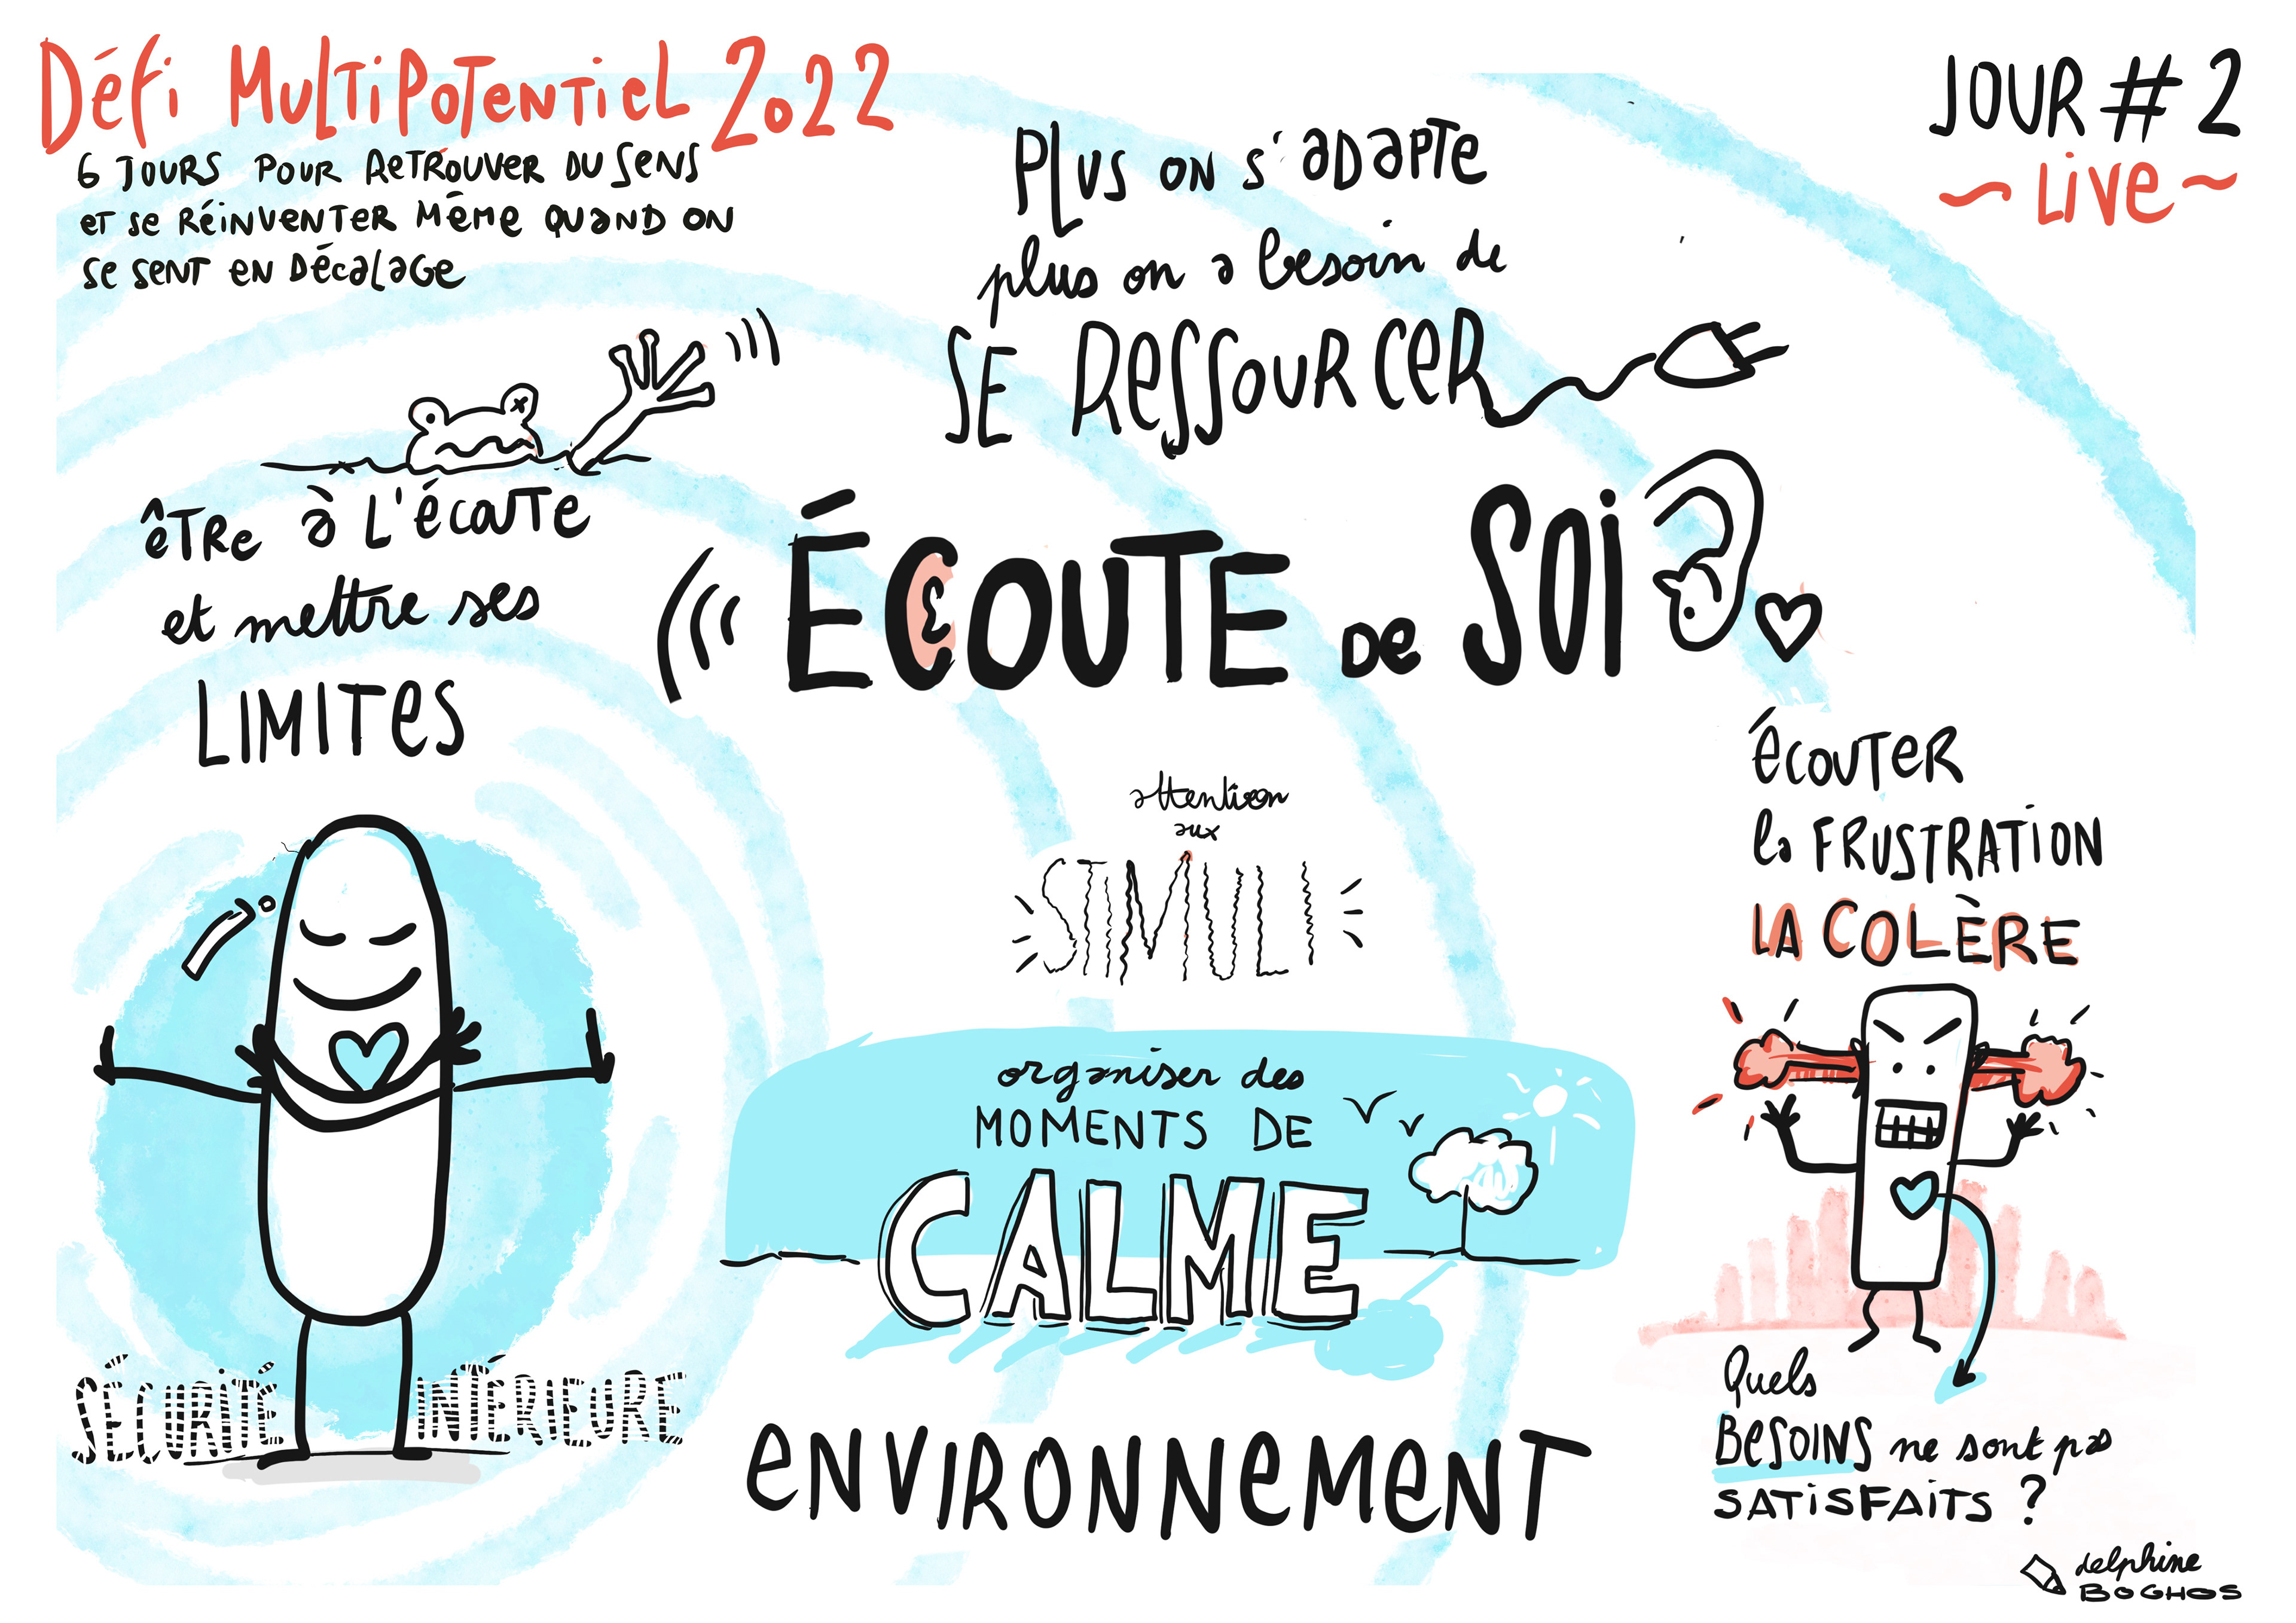 Défi Multipotentiel 2022
6 jours pour retrouver du sens
et se réinventer même quand on
se sent en décalage
JOUR #2
~ Live ~
Plus on s'adapte
plus on a besoin de
se ressourcer
être à l'écoute
et mettre ses
LIMITES
ÉCOUTE DE SOI
attention
aux
STIMULI
écouter
la FRUSTRATION
LA COLÈRE
organiser des
MOMENTS DE
CALME
ENVIRONNEMENT
SÉCURITÉ INTÉRIEURE
Quels
BESOINS ne sont pas
SATISFAITS ?
delphine
BOGHOS